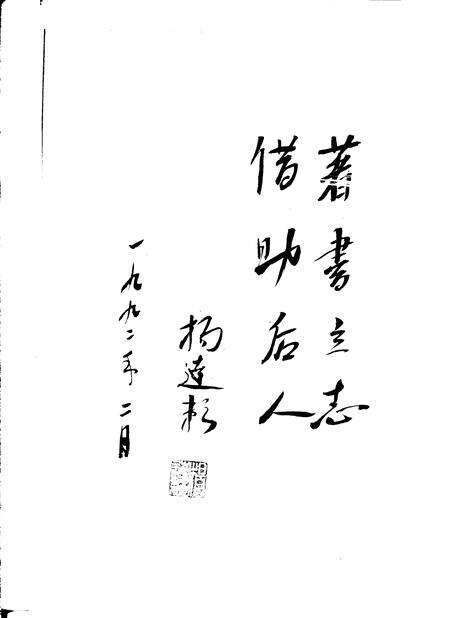 著書立志
借助后人
杨
一九九二年二月